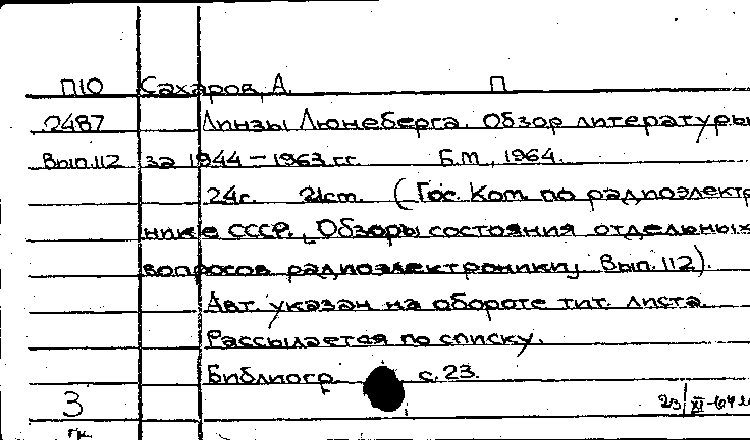 П10 Сахаров, А. П
2487 Линзы Люнеберга. Обзор литературы
Вып.112 за 1944-1963 гг. Б.м., 1964.
24с. 21см. (Гос. Ком. по радиоэлектро
нике СССР. „Обзоры состояния отдельных
вопросов радиоэлектроники„ Вып.112).
Авт. указан на обороте тит. листа.
Рассылается по списку.
Библиогр. с. 23.
3 23/XI-64